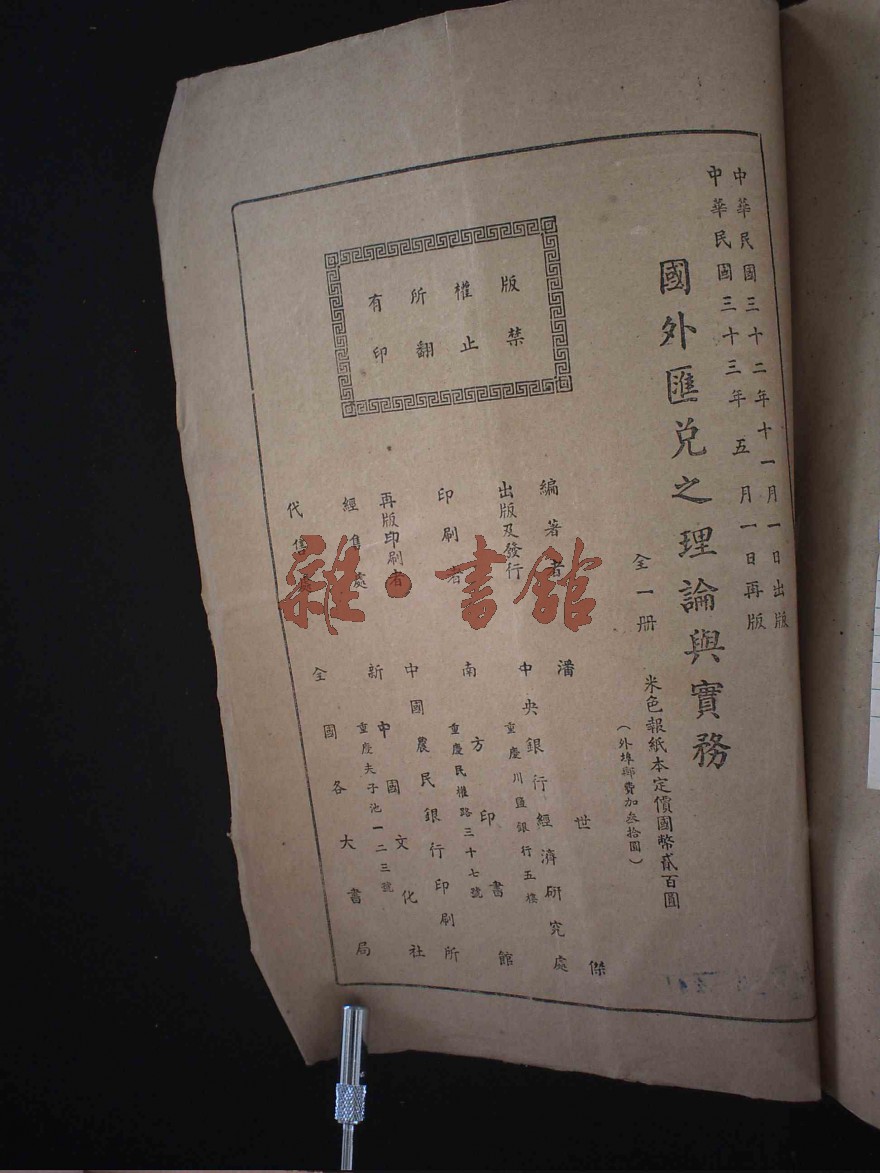 中華民國三十二年十一月一日出版
中華民國三十三年五月一日再版
國外匯兌之理論與實務
全一册
米色報紙本定價國幣貳百圓
(外埠郵費加叁拾圓)
版權所有
禁止翻印
編著者 潘世傑
出版及發行 中央銀行經濟研究處
重慶川鹽銀行五樓
印刷者 南方印書館
重慶民權路三十七號
再版印刷者 中國農民銀行印刷所
經售處 新中國文化社
重慶夫子池一二三號
代售處 全國各大書局
雜·書館